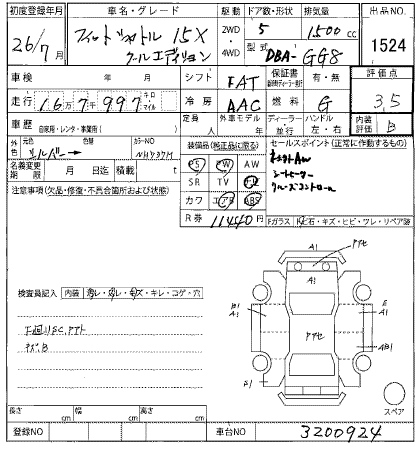 初度登録年月 車名・グレード 駆動 ドア数・形状 排気量 出品NO
26/7月 フィットシャトル 15X 2WD 5 1500cc 1524
クールエディション 4WD 型式 DBA-GG8
車検 年 月 シフト FAT 保証書 有・無 評価点
走行 16万7千997 キロ マイル 冷房 AAC 燃料 G 3,5
車歴 自家用・レンタ・事業所( ) 定員 人 外車モデル 年 ディーラー 並行 ハンドル 左・右 内装評価 B
外色 元色 シルバー 色替 カラーNO NH737M
装備品(純正品に限る) セールスポイント(正常に作動するもの)
名義変更期限 月 日 積載 t
PS PW AW
SR TV
カワ エアB ABS
シートヒーター
クルーズコントロール
注意事項(欠品・修復・不具合箇所および状態)
R券 11440円
Fガラス
石・キズ・ヒビ・ツレ・リペア跡
A1
A1
検査員記入 内装
キレ・コゲ・穴
下廻りSC
B1
A1
E
A1
AB1
E1
A1
スペア
長さ cm 幅 cm 高さ cm
登録NO 車台NO 3200924